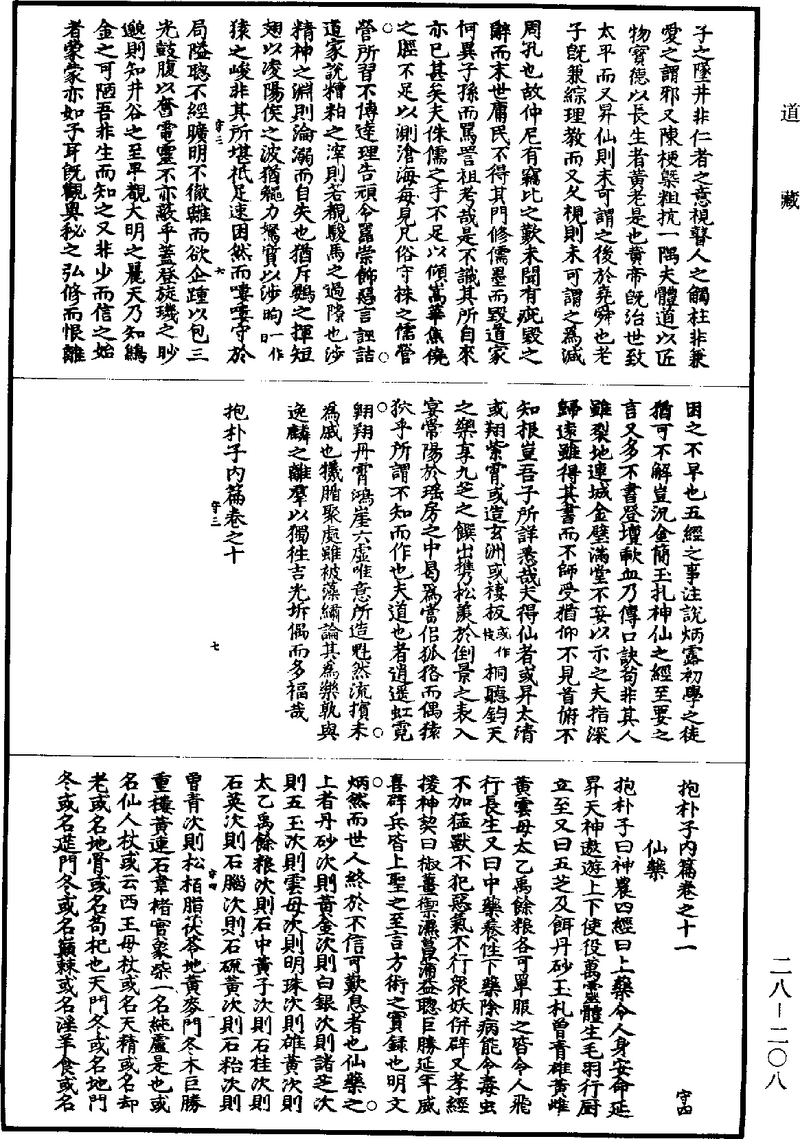 道藏
子之墜井非仁者之意視瞽人之觸柱非兼
愛之謂邪又陳梗槩粗抗一隅夫體道以匠
物寳德以長生者黃老是也黃帝旣治世致
太平而又昇仙則未可謂之後於堯舜也老
子旣兼綜禮教而又久視則未可謂之為減
周孔也故仲尼有竊比之歎未聞有疵毀之
辭而末世庸民不得其門修儒墨而毀道家
何異子孫而罵詈祖考哉是不識其所自來
亦已甚矣夫侏儒之手不足以傾嵩華焦僥
之脛不足以測滄海每見凡俗守株之儒營
營所習不愽達理告頑令嚚崇飾惡言誣詰
道家說糟粕之滓則若覩駿馬之過隙也涉
精神之淵則淪溺而自失也猶斥鷃之揮短
翅以凌陽侯之波猶蠅力駑質以涉昫一作
猿之峻非其所堪祇足速困然而嘍嘍守於
局隘聦不經曠明不徹離而欲企踵以包三
守三 六
光鼓腹以奮雷靈不亦蔽乎蓋登旋璣之眇
邈則知井谷之至卑覩大明之麗天乃知鷦
金之可陋吾非生而知之又非少而信之始
者蒙蒙亦如子耳旣觀奥秘之弘修而恨離
困之不早也五經之事注說炳露初學之徒
猶可不解豈況金簡玉札神仙之經至要之
言又多不書登壇歃血乃傳口訣苟非其人
雖裂地連城金璧滿堂不妄以示之夫指深
歸遠雖得其書而不師受猶仰不見首俯不
知根豈吾子所詳悉哉夫得仙者或昇太清
或翔紫霄或造玄洲或棲板或作桐聽鈞天
之樂享九芝之饌出攜松羡於倒景之表入
宴常陽於瑤房之中曷為當侶狐狢而偶猿
狖乎所謂不知而作也夫道也者逍遥虹霓
翺翔丹霄鴻崖六虛唯意所造魁然流擯未
為戚也犧腯聚處雖被藻繡論其為樂孰與
逸麟之離羣以獨徃吉光坼偶而多福哉
抱朴子内篇卷之十
守三 七
抱朴子内篇卷之十一 守四
仙藥
抱朴子曰神農四經曰上藥令人身安命延
昇天神遨遊上下使役萬靈體生毛羽行厨
立至又曰五芝及餌丹砂玉札曾青雄黃雌
黃雲母太乙禹餘粮各可單服之皆令人飛
行長生又曰中藥養性下藥除病能令毒虫
不加猛獸不犯惡氣不行衆妖併辟又孝經
援神契曰椒薑禦濕菖蒲益聦巨勝延年威
喜辟兵皆上聖之至言方術之實録也明文
炳然而世人終於不信可歎息者也仙藥之
上者丹砂次則黃金次則白銀次則諸芝次
則五玉次則雲母次則明珠次則雄黃次則
太乙禹餘粮次則石中黃子次則石桂次則
石英次則石腦次則石硫黃次則石粭次則
守四 一
曾青次則松栢脂茯苓地黃麥門冬木巨勝
重樓黃連石韋楮實象柴一名純盧是也或
名仙人杖或云西王母杖或名天精或名却
老或名地骨或名苟杞也天門冬或名地門
冬或名莚門冬或名巔棘或名淫羊食或名
二八—二〇八